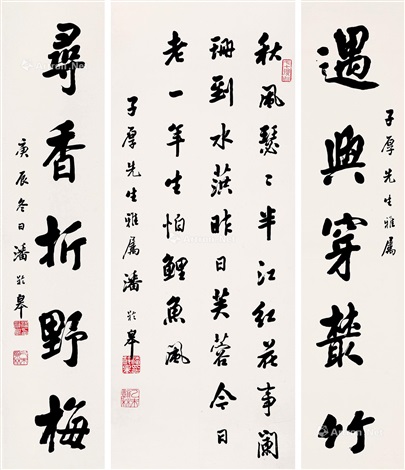 遇興穿叢竹
子厚先生雅属
秋風瑟〻半江紅花事闌
珊到水荭昨日芙蓉今日
老一年生怕鯉魚風
子厚先生雅属潘龄皋
尋香折野梅
庚辰冬日潘龄皋